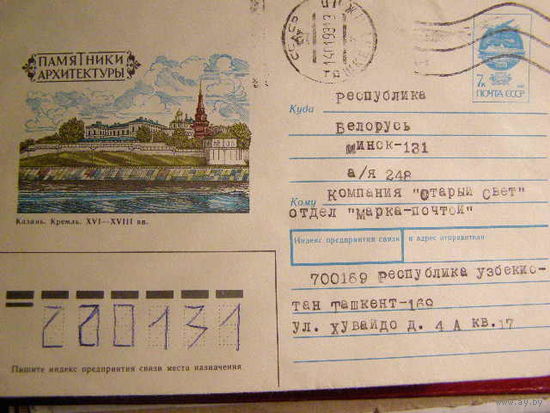 ПАМЯТНИКИ
АРХИТЕКТУРЫ
Казань. Кремль. XVI—XVIII вв.
7к
ПОЧТА СССР
Куда
Республика
Белорусь
Минск-131
а/я 248
Кому
Компания "Старый Свет"
отдел "Марка-почтой"
Индекс предприятия связи
и адрес отправителя
700169 Республика узбекис-
тан Ташкент-169
ул. Хувайдо д. 4 А кв.17
220131
Пишите индекс предприятия связи места назначения
www.ay.by